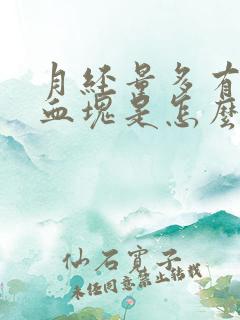 月经量多有
血塊是怎麼
仙石寶子
未经同意禁止转载